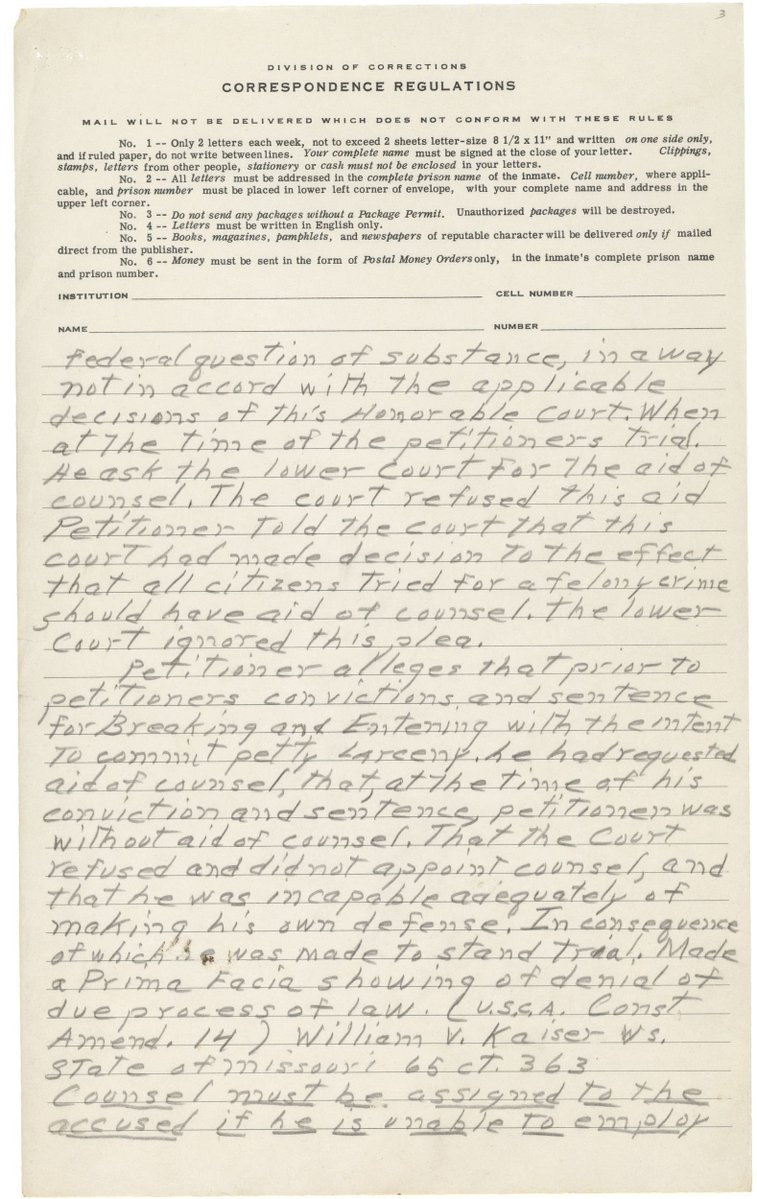 3
DIVISION OF CORRECTIONS
CORRESPONDENCE REGULATIONS
MAIL WILL NOT BE DELIVERED WHICH DOES NOT CONFORM WITH THESE RULES
No. 1 -- Only 2 letters each week, not to exceed 2 sheets letter-size 8 1/2 x 11" and written on one side only,
and if ruled paper, do not write between lines. Your complete name must be signed at the close of your letter. Clippings,
stamps, letters from other people, stationery or cash must not be enclosed in your letters.
No. 2 -- All letters must be addressed in the complete prison name of the inmate. Cell number, where appli-
cable, and prison number must be placed in lower left corner of envelope, with your complete name and address in the
upper left corner.
No. 3 -- Do not send any packages without a Package Permit. Unauthorized packages will be destroyed.
No. 4 -- Letters must be written in English only.
No. 5 -- Books, magazines, pamphlets, and newspapers of reputable character will be delivered only if mailed
direct from the publisher.
No. 6 -- Money must be sent in the form of Postal Money Orders only, in the inmate's complete prison name
and prison number.
INSTITUTION CELL NUMBER
NAME NUMBER
Federal question of substance, in a way
not in accord with the applicable
decisions of this Honorable Court. When
at the time of the petitioners trial.
He ask the lower court for the aid of
counsel. The court refused this aid
Petitioner told the court that this
court had made decision to the effect
that all citizens tried for a felony crime
should have aid of counsel. The lower
Court ignored this plea.
Petitioner alleges that prior to
petitioners convictions and sentence
for Breaking and Entering with the intent
To commit petty Larceny. he had requested
aid of counsel, that, at the time of his
conviction and sentence, petitioner was
without aid of counsel. That the Court
refused and did not appoint counsel, and
that he was incapable adequately of
making his own defense. In consequence
of which he was made to stand trial. Made
a Prima Facia showing of denial of
due process of law. (U.S.C.A. Const
Amend. 14) William V. Kaiser Vs.
State of missouri 65 ct. 363
Counsel must be assigned to the
accused if he is unable to employ